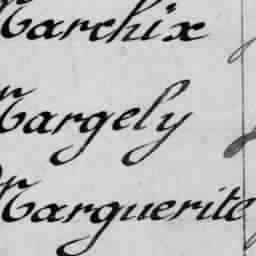 Marchix
Margely
Marguerite